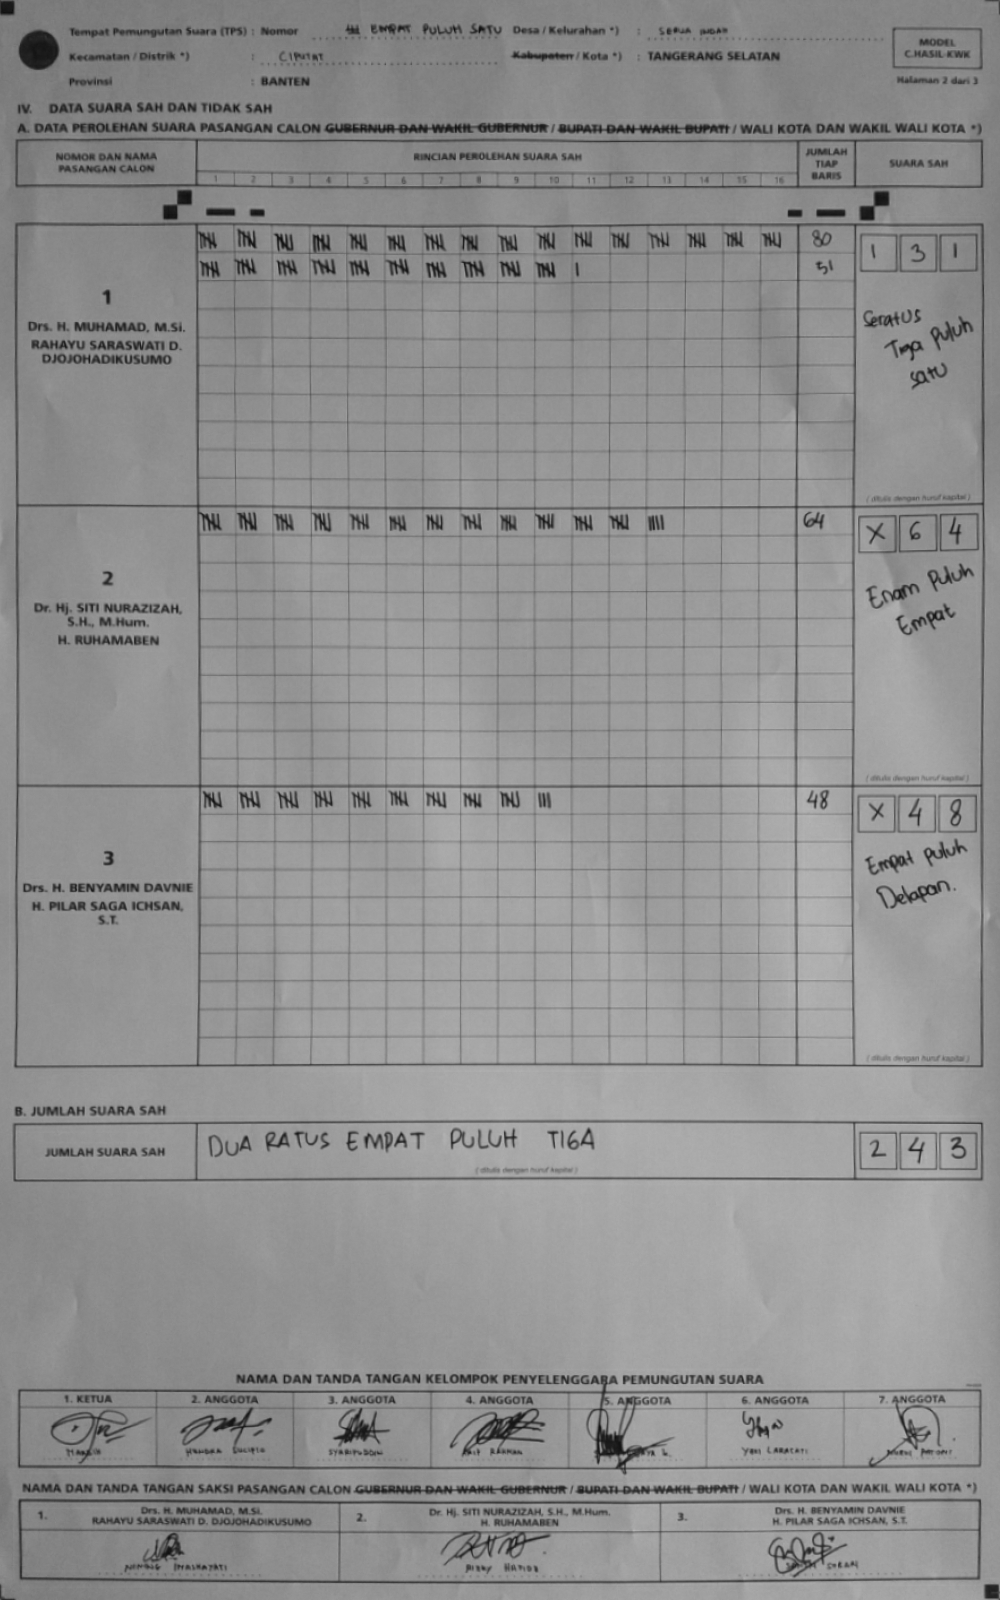 Tempat Pemungutan Suara (TPS) : Nomor 41 EMPAT PULUH SATU Desa / Kelurahan *) : SERUA INDAH
Kecamatan / Distrik *) : CIPUTAT Kabupaten / Kota *) : TANGERANG SELATAN
Provinsi : BANTEN
MODEL
C.HASIL-KWK
Halaman 2 dari 3
IV. DATA SUARA SAH DAN TIDAK SAH
A. DATA PEROLEHAN SUARA PASANGAN CALON GUBERNUR DAN WAKIL GUBERNUR / BUPATI DAN WAKIL BUPATI / WALI KOTA DAN WAKIL WALI KOTA *)
NOMOR DAN NAMA PASANGAN CALON
RINCIAN PEROLEHAN SUARA SAH
JUMLAH TIAP BARIS
SUARA SAH
1 2 3 4 5 6 7 8 9 10 11 12 13 14 15 16
1
Drs. H. MUHAMAD, M.Si.
RAHAYU SARASWATI D.
DJOJOHADIKUSUMO
80
51
1 3 1
Seratus
Tiga Puluh
satu
( ditulis dengan huruf kapital )
2
Dr. Hj. SITI NURAZIZAH,
S.H., M.Hum.
H. RUHAMABEN
64
X 6 4
Enam Puluh
Empat
( ditulis dengan huruf kapital )
3
Drs. H. BENYAMIN DAVNIE
H. PILAR SAGA ICHSAN,
S.T.
48
X 4 8
Empat puluh
Delapan.
( ditulis dengan huruf kapital )
B. JUMLAH SUARA SAH
JUMLAH SUARA SAH
DUA RATUS EMPAT PULUH TIGA
( ditulis dengan huruf kapital )
2 4 3
NAMA DAN TANDA TANGAN KELOMPOK PENYELENGGARA PEMUNGUTAN SUARA
1. KETUA 2. ANGGOTA 3. ANGGOTA 4. ANGGOTA 5. ANGGOTA 6. ANGGOTA 7. ANGGOTA
HENDRA SUCIPTO SYARIPUDDIN RAHMAN YENI LARASATI
NAMA DAN TANDA TANGAN SAKSI PASANGAN CALON GUBERNUR DAN WAKIL GUBERNUR / BUPATI DAN WAKIL BUPATI / WALI KOTA DAN WAKIL WALI KOTA *)
1. Drs. H. MUHAMAD, M.Si.
RAHAYU SARASWATI D. DJOJOHADIKUSUMO
2. Dr. Hj. SITI NURAZIZAH, S.H., M.Hum.
H. RUHAMABEN
3. Drs. H. BENYAMIN DAVNIE
H. PILAR SAGA ICHSAN, S.T.